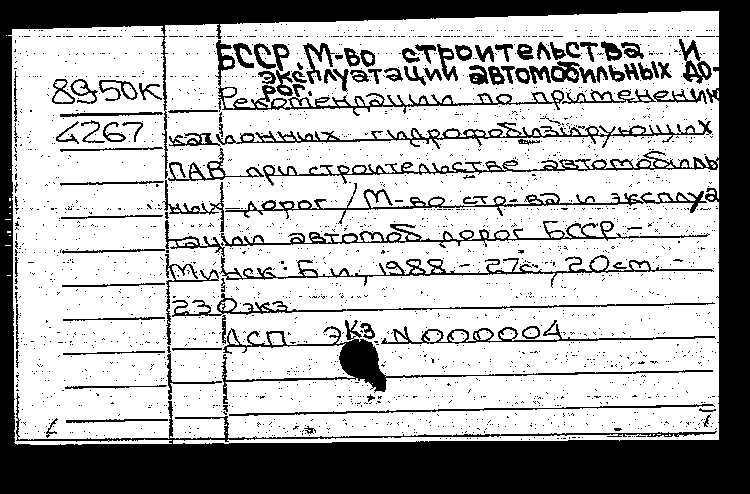 БССР. М-во строительства и
эксплуатации автомобильных до-
рог.
89-50К
Рекомендации по применению
4267
катионных гидрофобизирующих
ПАВ при строительстве автомобиль
ных дорог / М-во стр-ва и эксплуа
тации автомоб. дорог БССР. –
Минск: Б.и., 1988. – 27с.; 20см. –
230экз.
ДСП ЭКЗ. N 000004